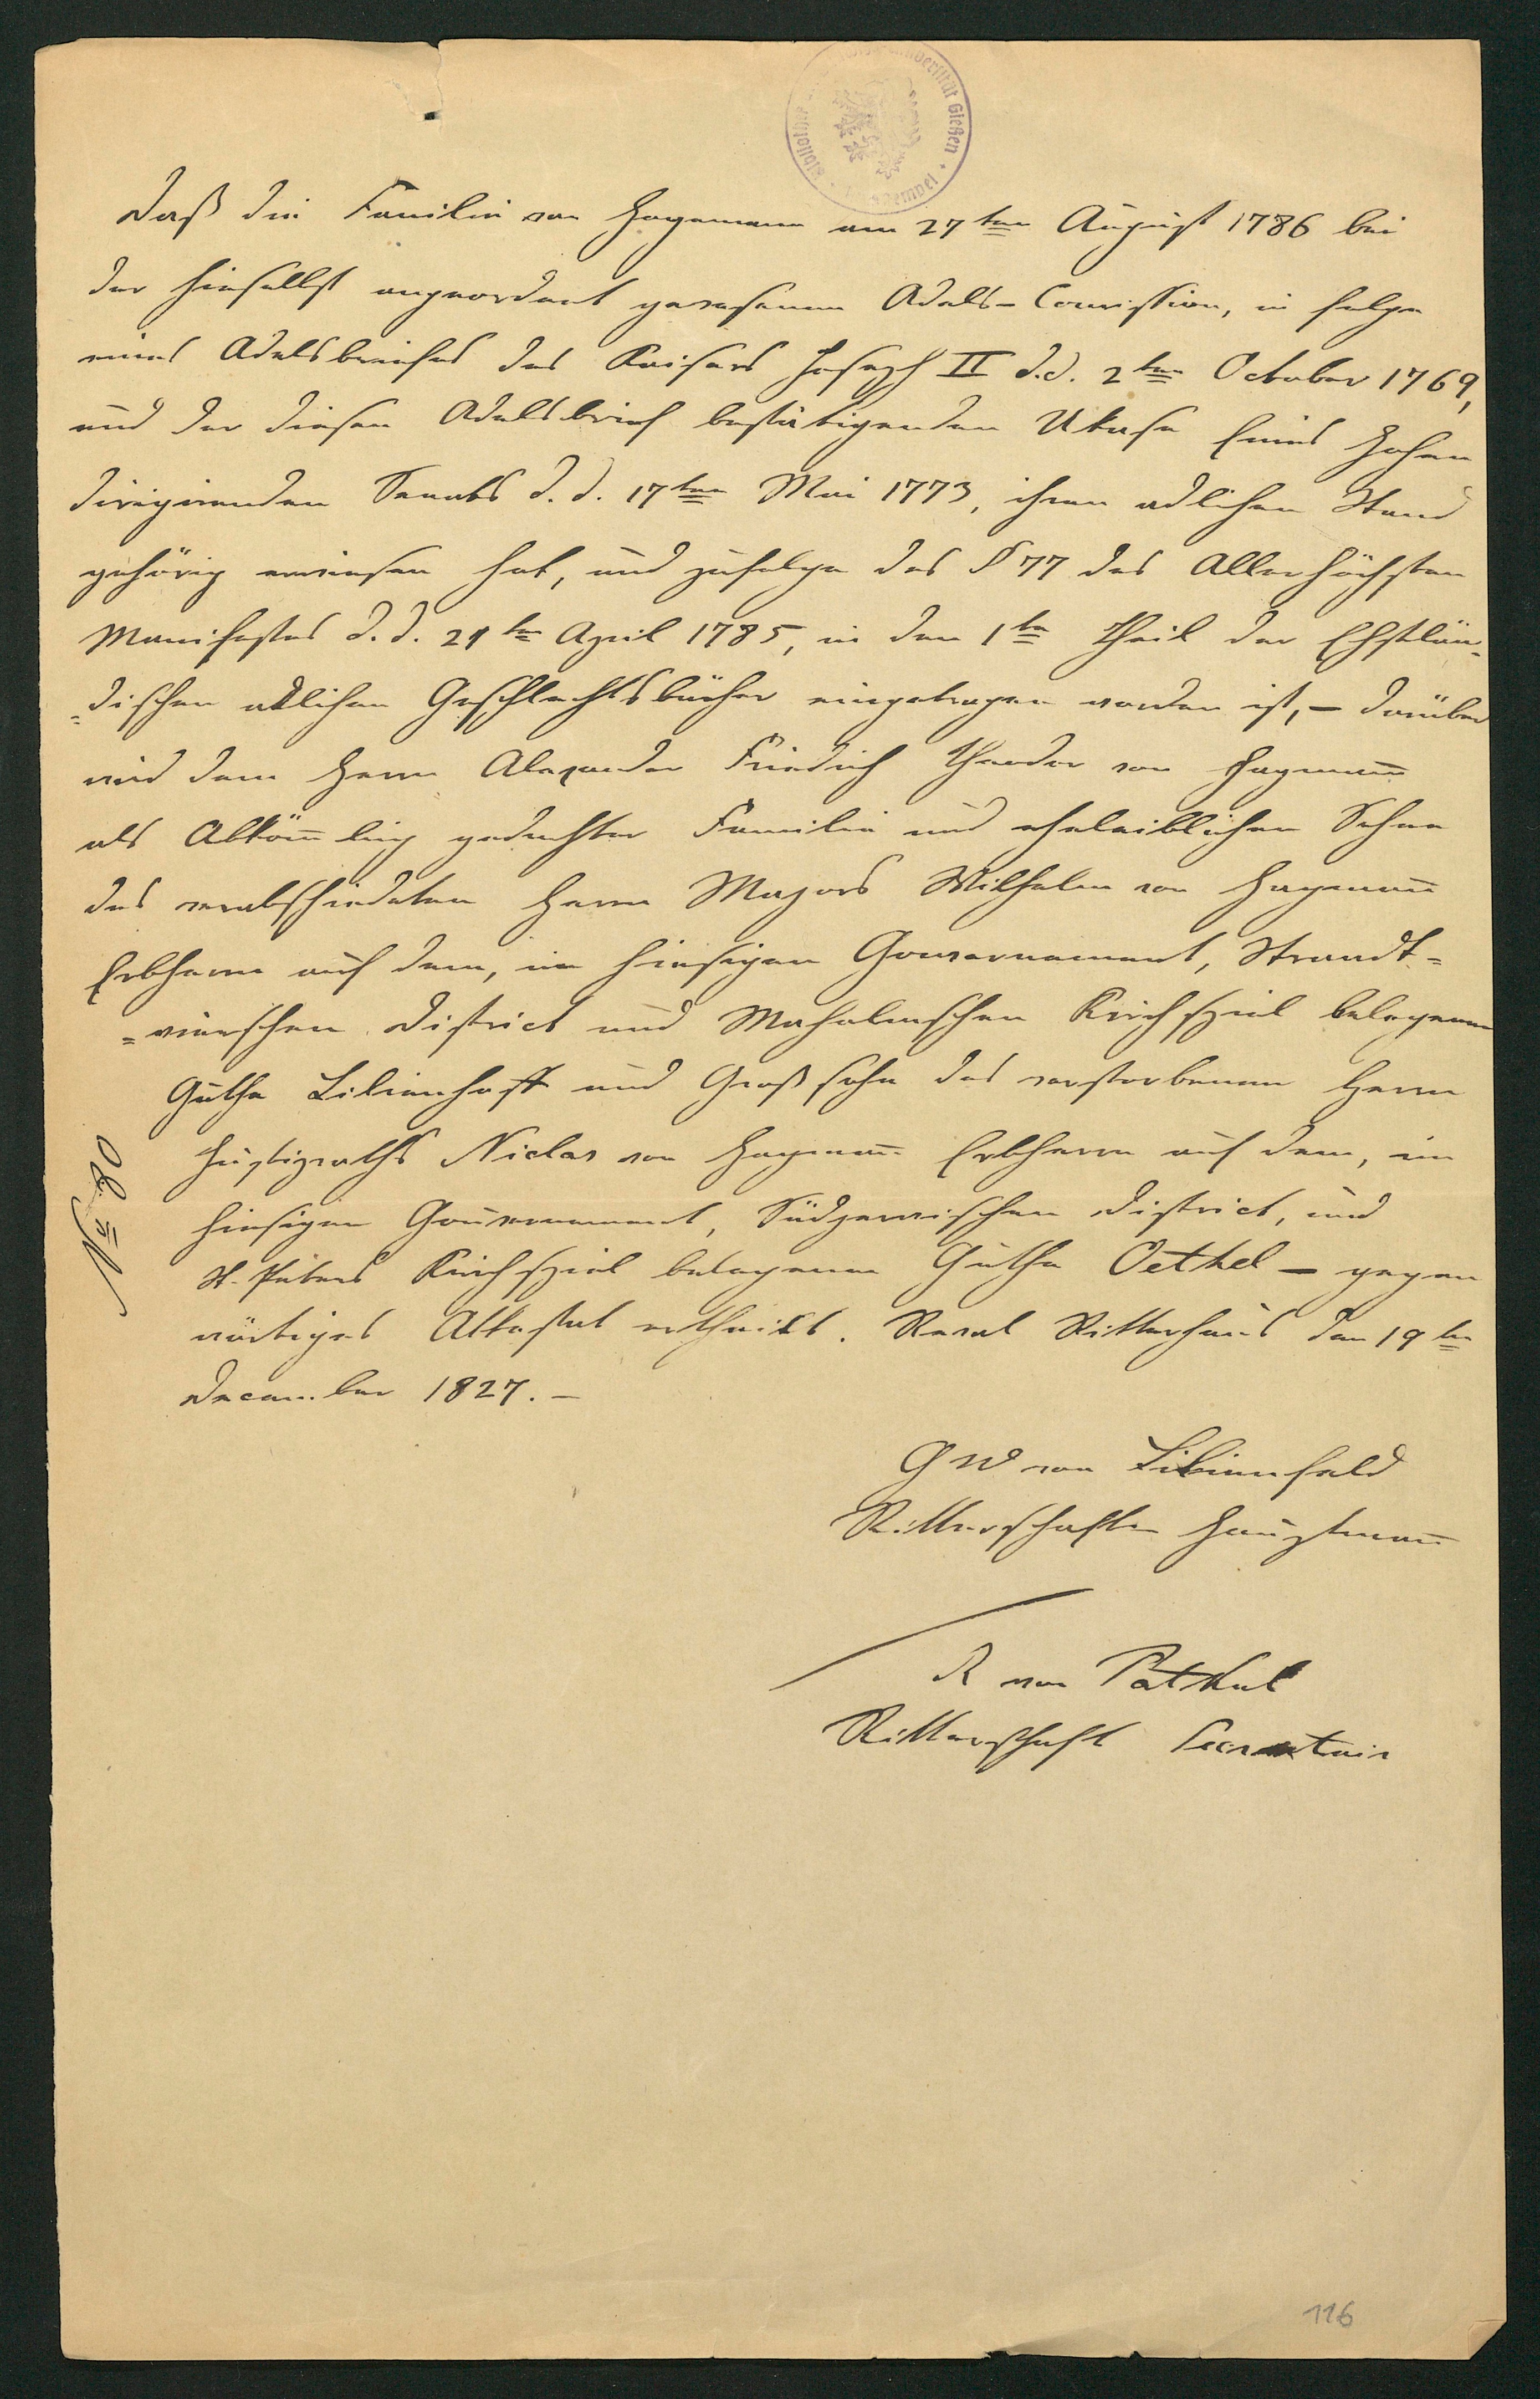 Daß die Familie von Hagemann am 27ten August 1786 bei
der hieselbst angeordnet gewesenen Adels-Com̅ission, in folge
eines Adelsbriefes des Kaisers Joseph II d.d. 2ten October 1769,
und der diesen Adelsbrief bestätigenden Ukase Eines Hohen
dirigirenden Senats d. d. 17ten Mai 1773, ihren adlichen Stand
gehörig erwiesen hat, und zufolge des § 77 des Allerhöchsten
Manifestes d. d. 21ten April 1785, in den 1ten Theil der Ehstlän-
=dischen adlichen Geschlechtsbücher eingetragen worden ist, – darüber
wird dem Herrn Alexander Friedrich Theodor von Hageman̅
als Abköm̅ling gedachter Familie und eheleiblichen Sohne
des verabschiedeten Herrn Majors Wilhelm von Hageman̅
Erbherrn auf dem, im hiesigen Gouvernement, Strandt=
=wierschen District und Maholmschen Kirchspiel belegenen
Guthe Lilienhoff und Großsohn des verstorbenen Herrn
Justizraths Niclas von Hageman̅ Erbherrn auf dem, im
hiesigen Gouvernement, Südjerwischen District, und
St. Petris Kirchspiel belegenen Guthe Oethel – gegen
wärtiges Attestat ertheilt. Reval Ritterhaus den 19ten
December 1827. –
No 80
G W von Lilienfeld
Ritterschafts Hauptman̅
R von Patkul
Ritterschaft Secretair
116